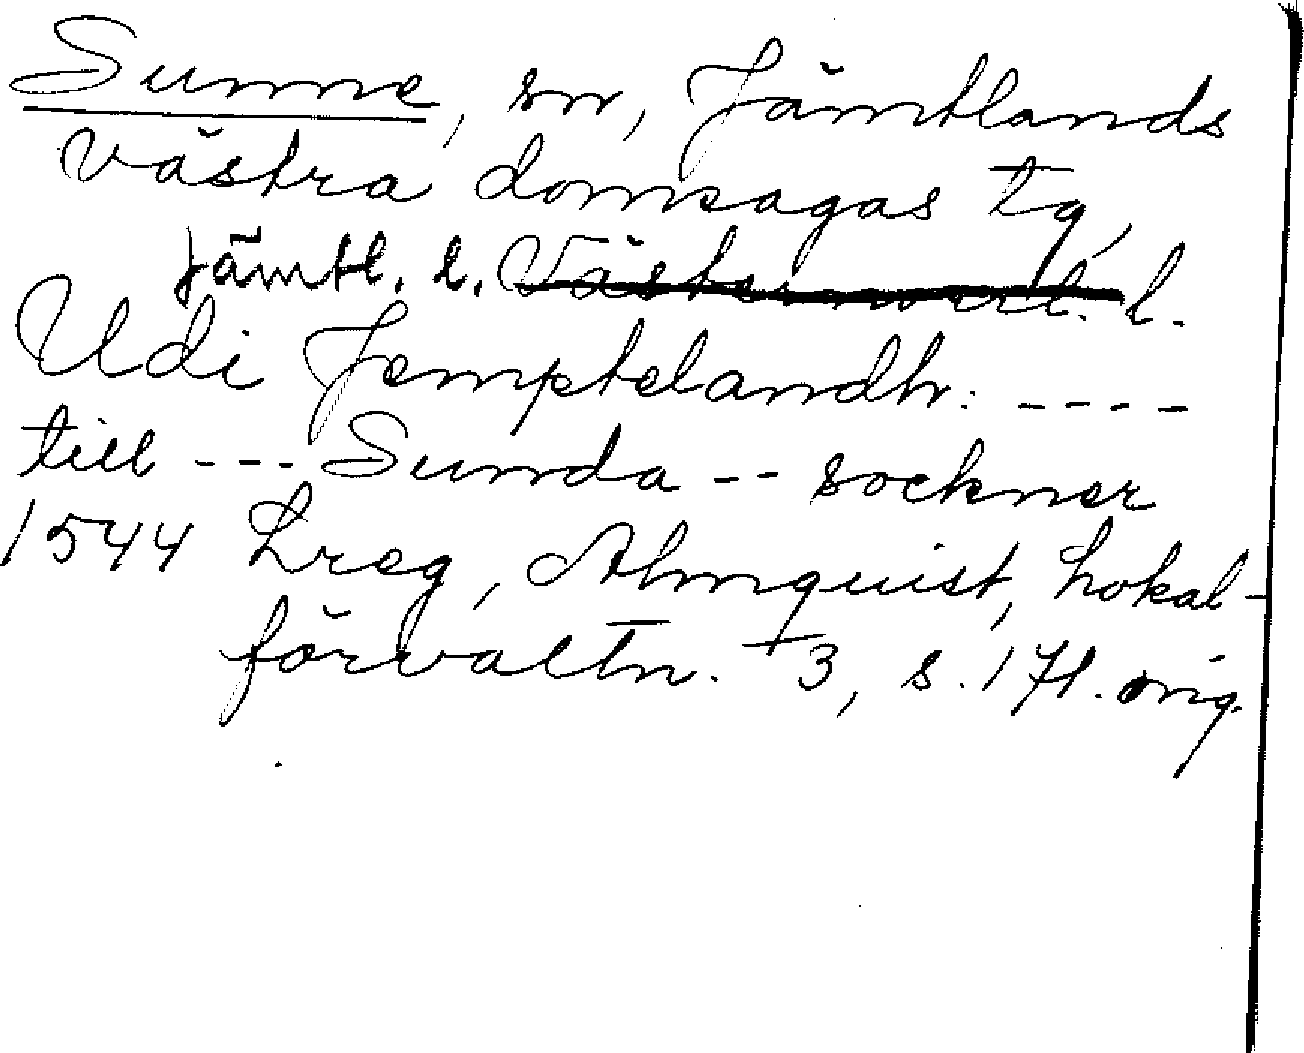 Sunne, sn, Jämtlands
västra domsagas tg,
Jämtl. l. Västernorrl. l.
Udi Jemptelandh: ----
till --- Sunda -- sockner
1544 Lreg, Almquist, Lokal-
förvaltn. 3, s. 171. orig.